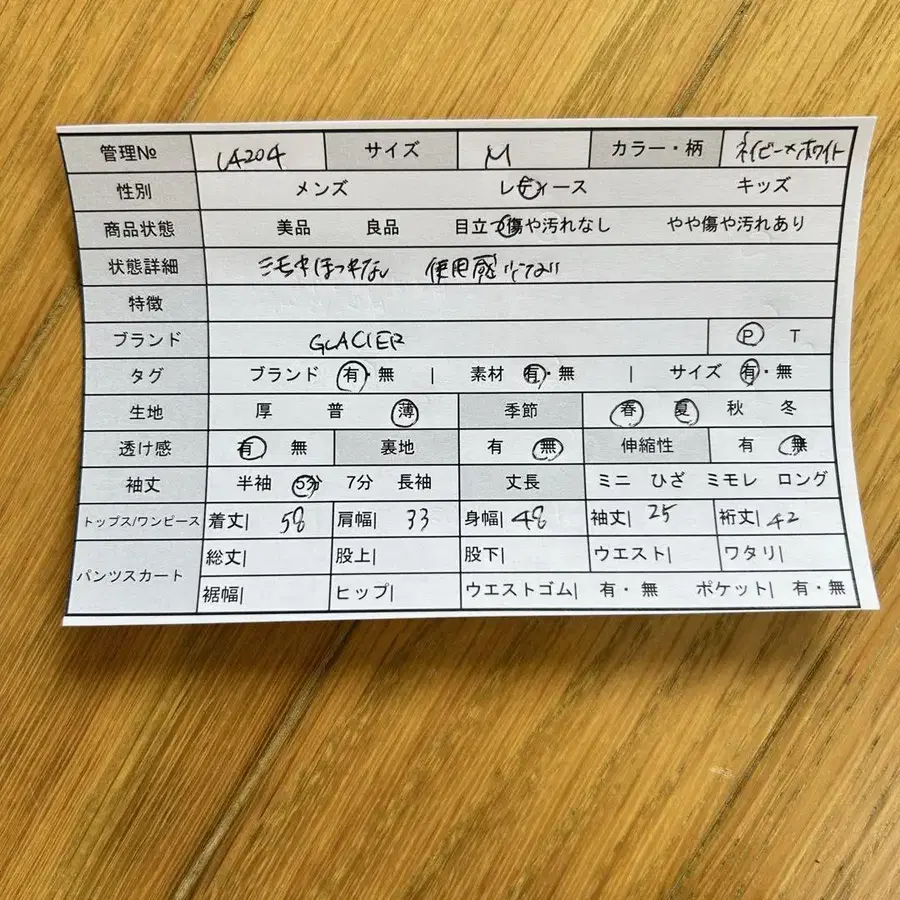 管理№ U4204 サイズ M カラー・柄 ネイビー×ホワイト
性別 メンズ レディース キッズ
商品状態 美品 良品 目立つ傷や汚れなし やや傷や汚れあり
状態詳細 使用感
特徴
ブランド GLACIER P T
タグ ブランド 有・無 | 素材 有・無 | サイズ 有・無
生地 厚 普 薄 季節 春 夏 秋 冬
透け感 有 無 裏地 有 無 伸縮性 有 無
袖丈 半袖 5分 7分 長袖 丈長 ミニ ひざ ミモレ ロング
トップス/ワンピース 着丈| 58 肩幅| 33 身幅| 48 袖丈| 25 裄丈| 42
パンツスカート 総丈| 股上| 股下| ウエスト| ワタリ|
裾幅| ヒップ| ウエストゴム| 有・無 ポケット| 有・無